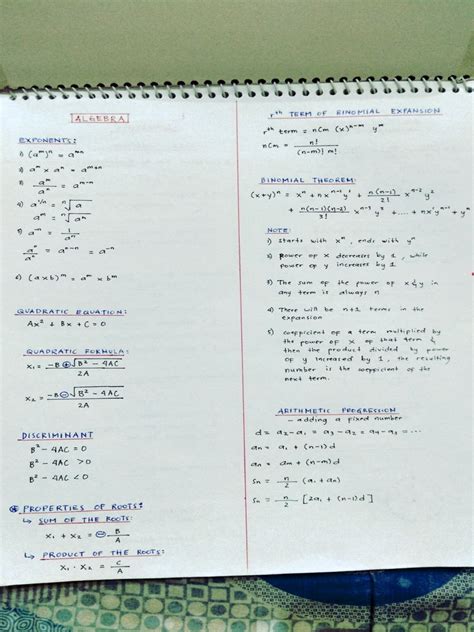 ALGEBRA
EXPONENTS:
1) (a^m)^n = a^mn
2) a^m x a^n = a^m+n
3) a^m / a^n = a^m-n
4) a^1/n = ⁿ√a
a^m/n = ⁿ√a^m
5) a^-m = 1 / a^m
6) (axb)^m = a^m x b^m
QUADRATIC EQUATION:
Ax² + Bx + C = 0
QUADRATIC FORMULA:
x₁ = -B ⊕ √B² - 4AC / 2A
x₂ = -B ⊖ √B² - 4AC / 2A
DISCRIMINANT
B² - 4AC = 0
B² - 4AC > 0
B² - 4AC < 0
PROPERTIES OF ROOTS:
↳ SUM OF THE ROOTS:
x₁ + x₂ = ⊖ B / A
↳ PRODUCT OF THE ROOTS:
x₁ · x₂ = C / A
r^th TERM OF BINOMIAL EXPANSION
r^th term = nCm (x)^n-m y^m
nCm = n! / (n-m)! m!
BINOMIAL THEOREM:
(x+y)^n = x^n + nx^n-1 y + n(n-1) / 2! x^n-2 y²
+ n(n-1)(n-2) / 3! x^n-3 y³ + .... + nxy^n-1 + y^n
NOTE:
1) Starts with x^n, ends with y^n
2) Power of x decreases by 1, while
power of y increases by 1
3) The sum of the power of x & y in
any term is always n
4) There will be n+1 terms in the
expansion
5) coefficient of a term multiplied by
the power of x of that term &
then the product divided by power
of y increased by 1, the resulting
number is the coefficient of the
next term.
ARITHMETIC PROGRESSION
- adding a fixed number
d = a₂-a₁ = a₃-a₂ = a₄-a₃ = ...
an = a₁ + (n-1)d
an = am + (n-m)d
Sn = n / 2 (a₁ + an)
Sn = n / 2 [2a₁ + (n-1)d]